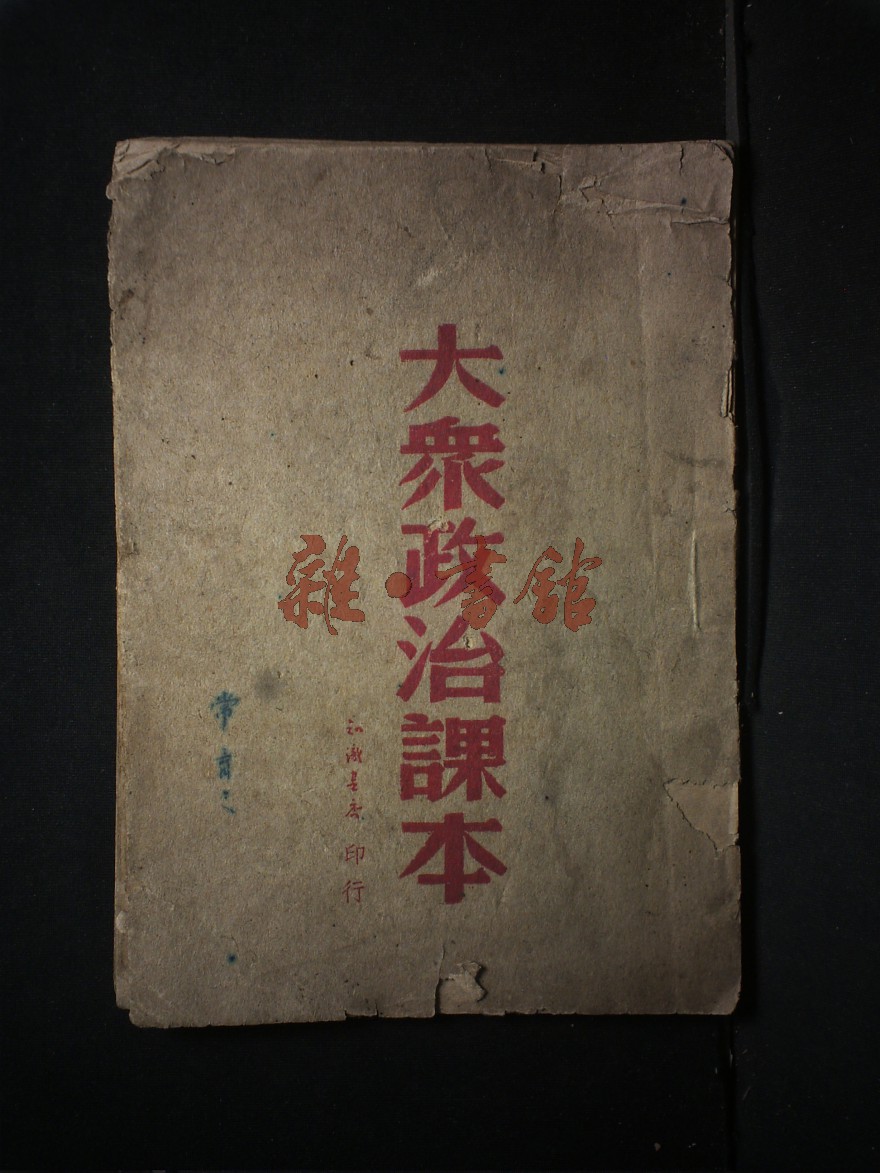 大衆政治課本
知識書店 印行
常育之
雜·書館